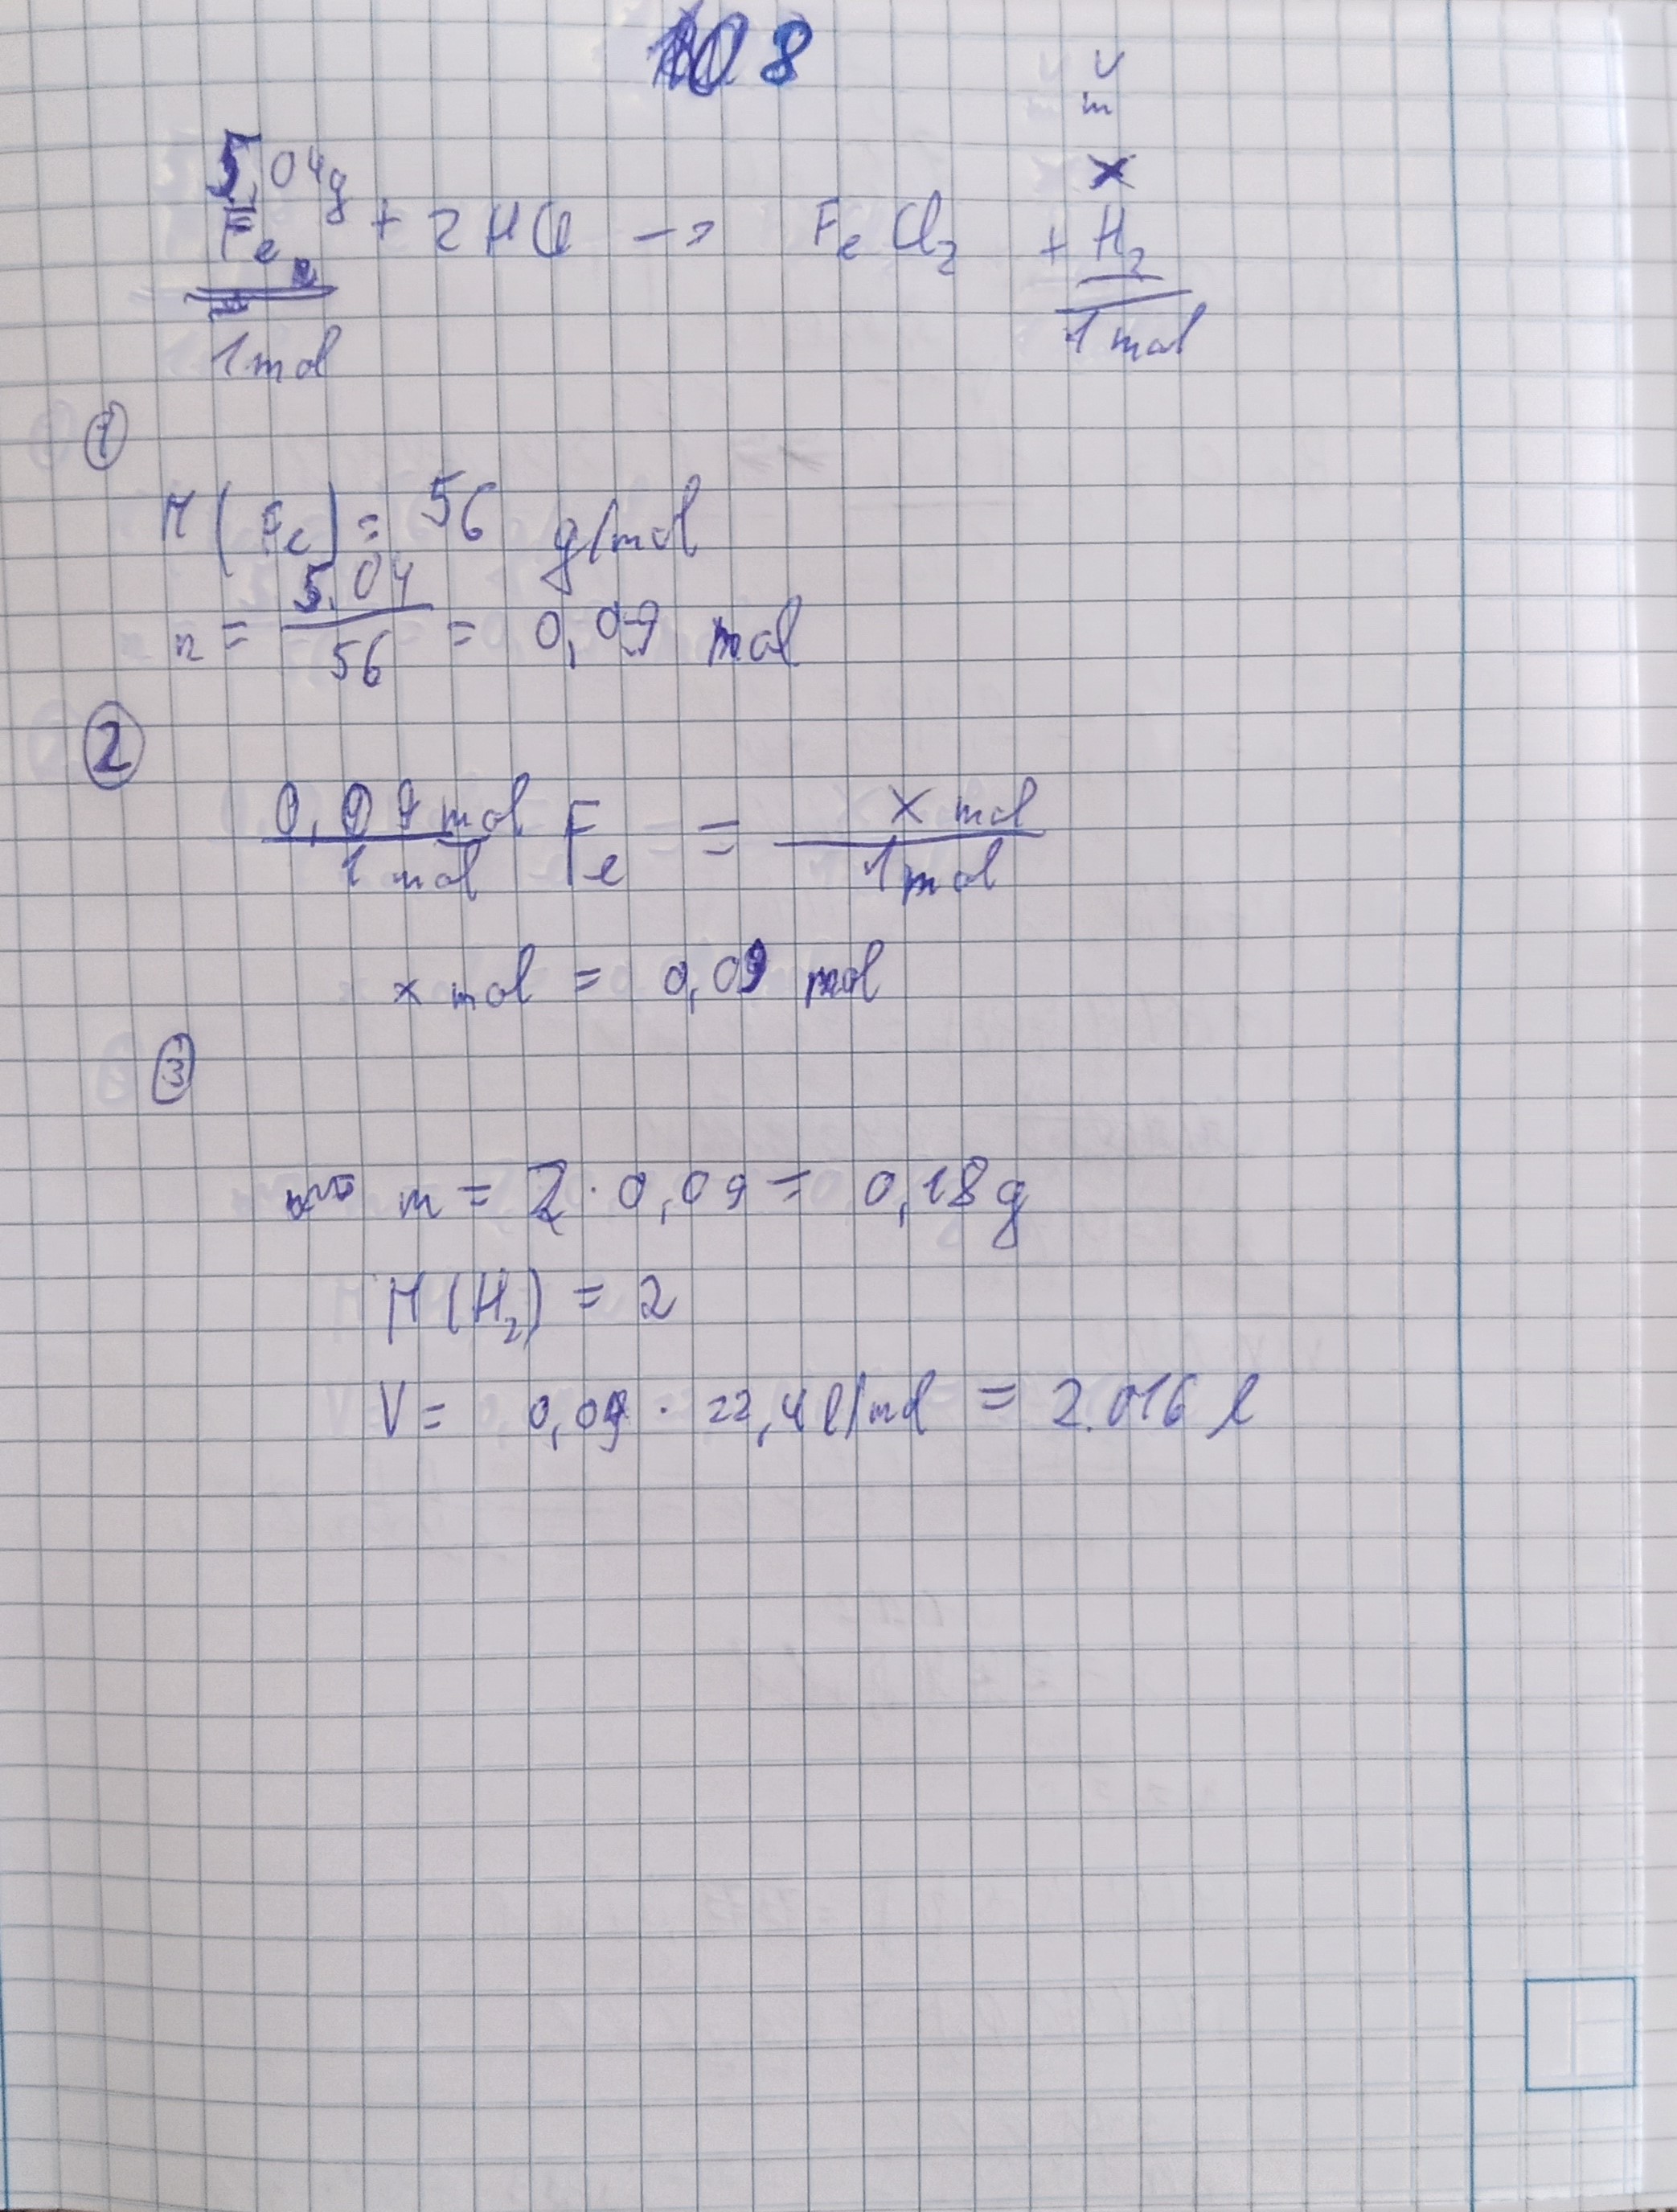 8
V
m
5,04g x
Fe + 2HCl -> FeCl2 + H2
1mol 1mol
1
M(Fe) = 56 g/mol
n = 5.04/56 = 0,09 mol
2
0,09 mol/1 mol Fe = x mol/1mol
x mol = 0,09 mol
3
m = 2 · 0,09 = 0,18g
M(H2) = 2
V = 0,09 · 22,4 l/mol = 2.016 l